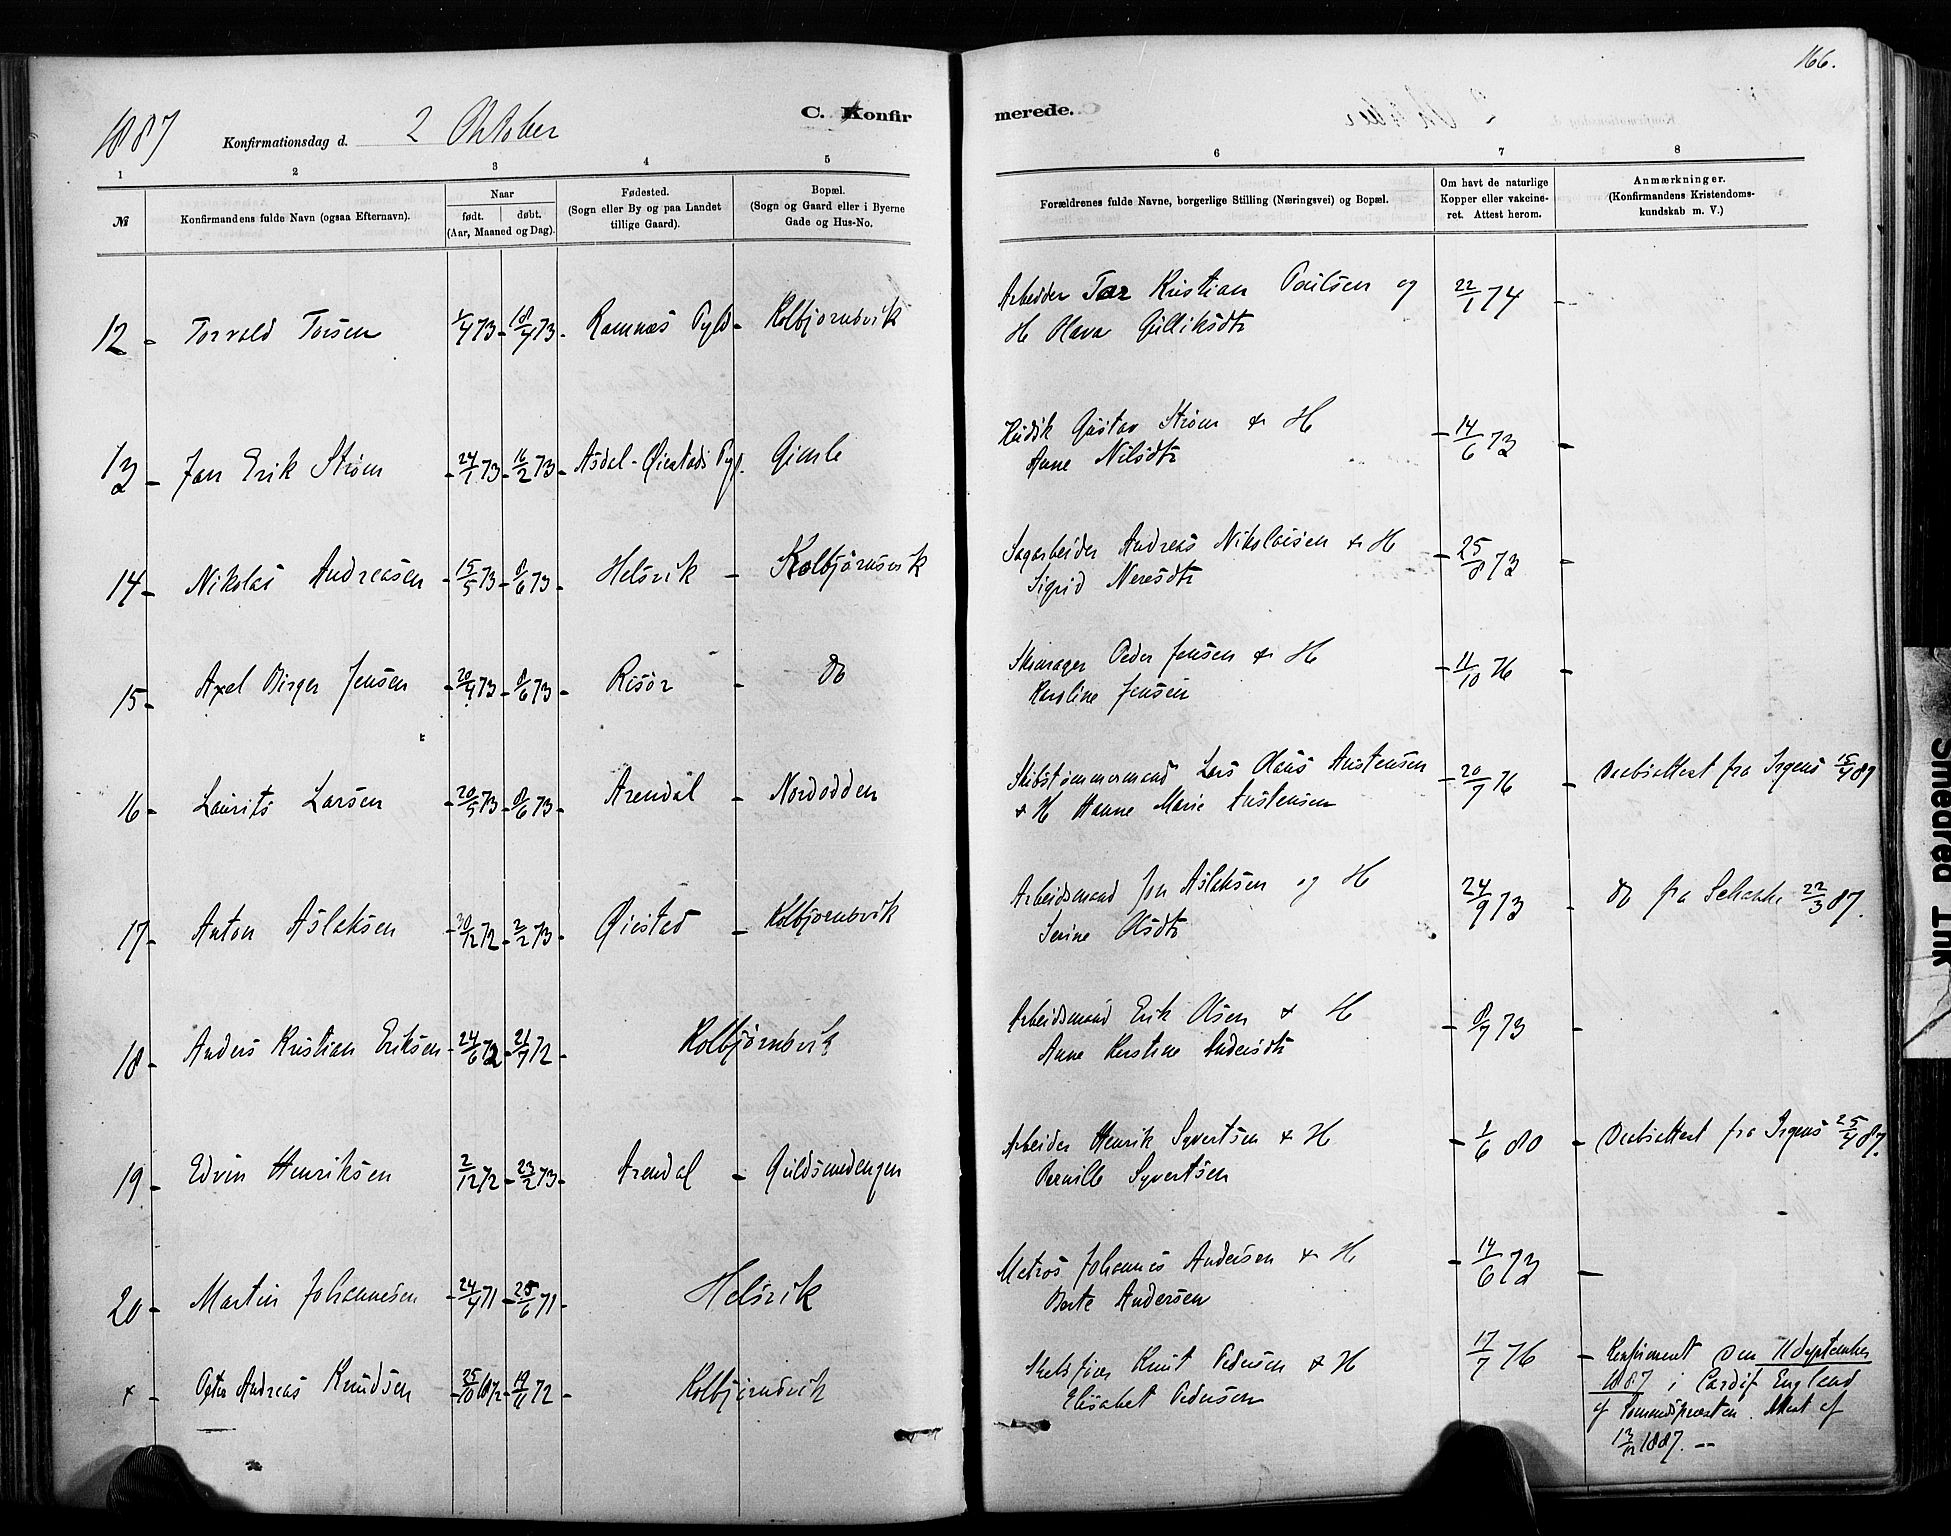 166.
1887 Konfirmationsdag d. 2 Oktober
C. Konfir merede.
1 2 3 4 5 6 7 8
№
Konfirmandens fulde Navn (ogsaa Efternavn).
Naar
født. døbt.
(Aar, Maaned og Dag).
Fødested.
(Sogn eller By og paa Landet
tillige Gaard).
Bopæl.
(Sogn og Gaard eller i Byerne
Gade og Hus-No.
Forældrenes fulde Navne, borgerlige Stilling (Næringsvei) og Bopæl.
Om havt de naturlige
Kopper eller vakcine-
ret. Attest herom.
Anmærkninger.
(Konfirmandens Kristendoms-
kundskab m. V.)
12 - Torvald Torsen 1/4 73 - 18/7 73 - Ramnæs Pgld - Kolbjørnsvik
Arbeider Tor Kristian Poulsen og 22/1 74 -
H Olava Gulliksdtr
13 - Jan Erik Strøm - 24/1 73 - 16/2 73 - Asdal - Øiestads Pgl. Gimle
Gustav Strøm & H - 14/6 73 -
Anne Nilsdtr
14 - Nikolai Andreasen - 15/5 73 - 8/6 73 - Helsvik - Kolbjørnsvik
Sagarbeider Andreas Nikolaisen & H - 25/8 73 -
Sigrid Neresdtr
15 - Axel Birger Jensen - 20/4 73 - 8/6 73 - Risør - do
Skomager Peder Jensen & H - 11/10 76 -
Karoline Jensen
16 - Laurits Larsen - 20/5 73 - 8/6 73 - Arendal - Nordodden
Skibstømmermand Lars Olaus Austensen - 20/7 76 - Daabsattest fra Irgens 15/4 87
& H Hanne Marie Austensen
17 - Anton Aslaksen - 30/12 72 - 2/2 73 - Øiestad - Kolbjørnsvik
Arbeidsmand Jon Aslaksen og H 24/9 73 - do fra Schanke 22/3 87.
Serine Olsdtr
18 - Anders Kristian Eriksen - 24/6 72 - 21/7 72 - Kolbjørnsvik
Arbeidsmand Erik Olsen & H - 8/7 73 -
Anne Kerstine Andersdtr
19 - Edvin Henriksen 2/12 72 - 23/2 73 - Arendal - Guldsmedengen
Arbeider Henrik Syvertsen & H - 1/6 80 - Daabsattest fra Irgens 25/4 87.
Pernille Syvertsen
20 - Martin Johannesen - 24/4 71 - 25/6 71 - Helsvik
Matros Johannes Andersen & H - 14/6 73 -
Berte Andersen
x Peter Andreas Knudsen - 25/10 1872 - 19/11 72 - Kolbjørnsvik
Knut Pedersen & H 17/7 76 - Konfirmeret den 11 September
Elisabet Pedersen 1887 i Cardif England
af Sømandspræsten. Attest af
13/12 1887. --
Smeared Ink